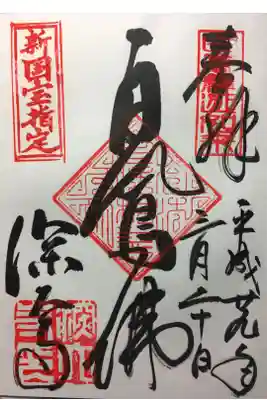 奉拝
平成廿九年
三月二十日
白鳳佛
深大寺
新國宝指定